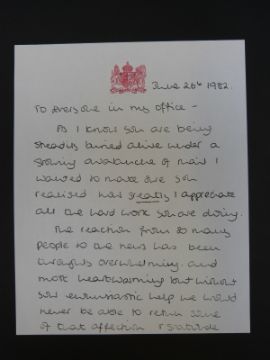 June 26th 1982.
To everyone in my office -
As I know you are being
steadily buried alive under a
growing avalanche of mail I
wanted to make sure you
realised how greatly I appreciate
all the hard work you are doing.
The reaction from so many
people to the news has been
overwhelming and
most heartwarming but without
your enthusiastic help we would
never be able to return some
of that affection & gratitude